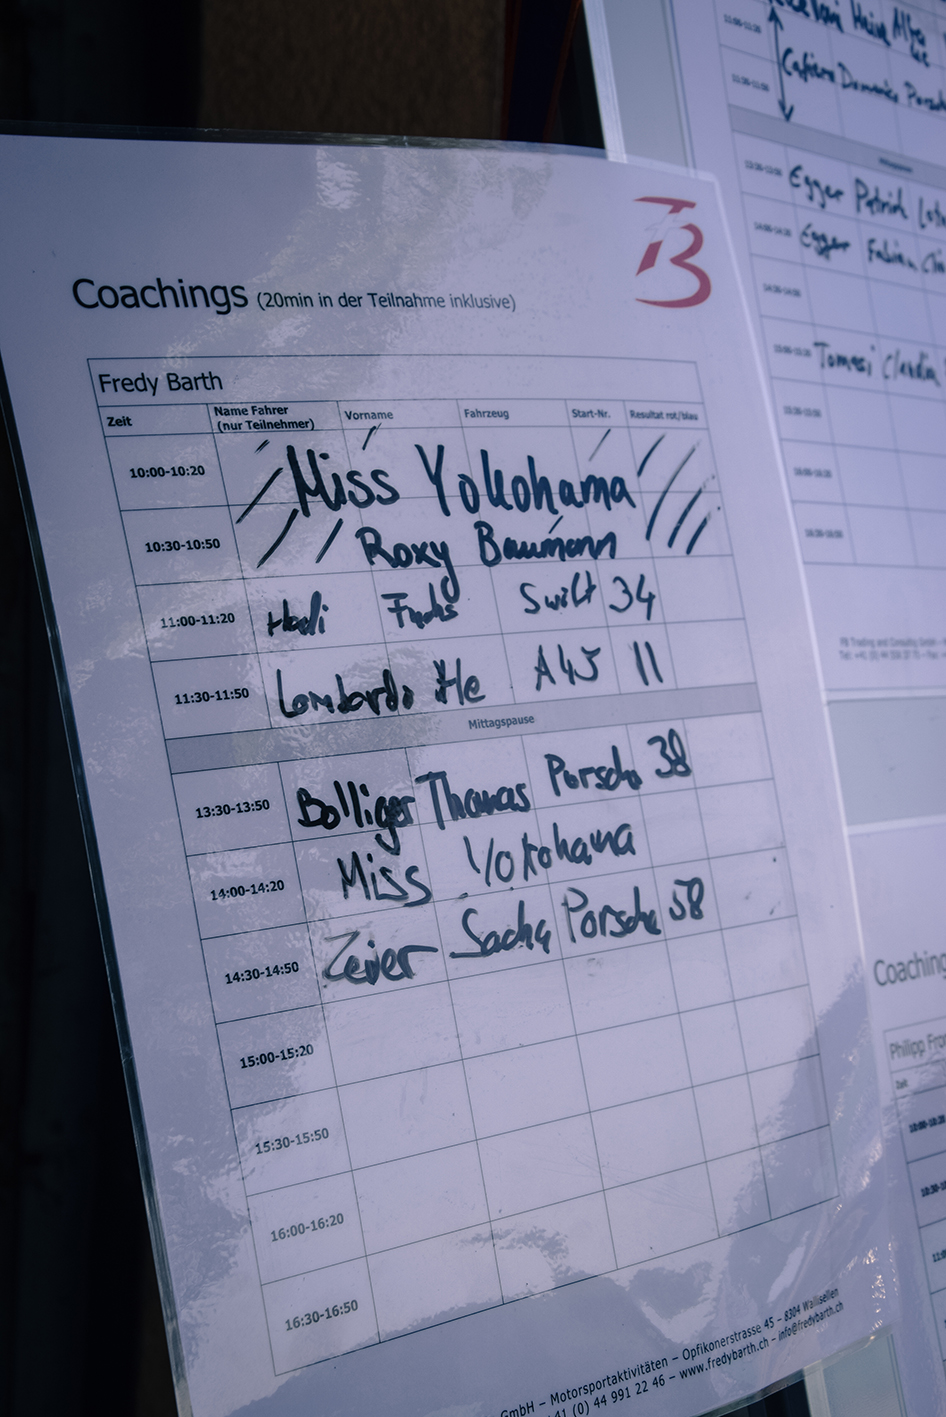 Coachings (20min in der Teilnahme inklusive)
B
Fredy Barth
Zeit Name Fahrer (nur Teilnehmer) Vorname Fahrzeug Start-Nr. Resultat rot/blau
10:00-10:20 Miss Yokohama
10:30-10:50 Roxy Baumann
11:00-11:20 Fuchs Swift 34
11:30-11:50 Lombardo A45 11
Mittagspause
13:30-13:50 Bolliger Thomas Porsche 38
14:00-14:20 Miss Yokohama
14:30-14:50 Zeier Sacha Porsche 58
15:00-15:20
15:30-15:50
16:00-16:20
16:30-16:50
GmbH – Motorsportaktivitäten – Opfikonerstrasse 45 – 8304 Wallisellen
41 (0) 44 991 22 46 – www.fredybarth.ch – info@fredybarth.ch
Domenico
Mittagspause
Egger Patrick
Egger Fabian
Tomasi Claudia
Coaching
Philipp
Zeit